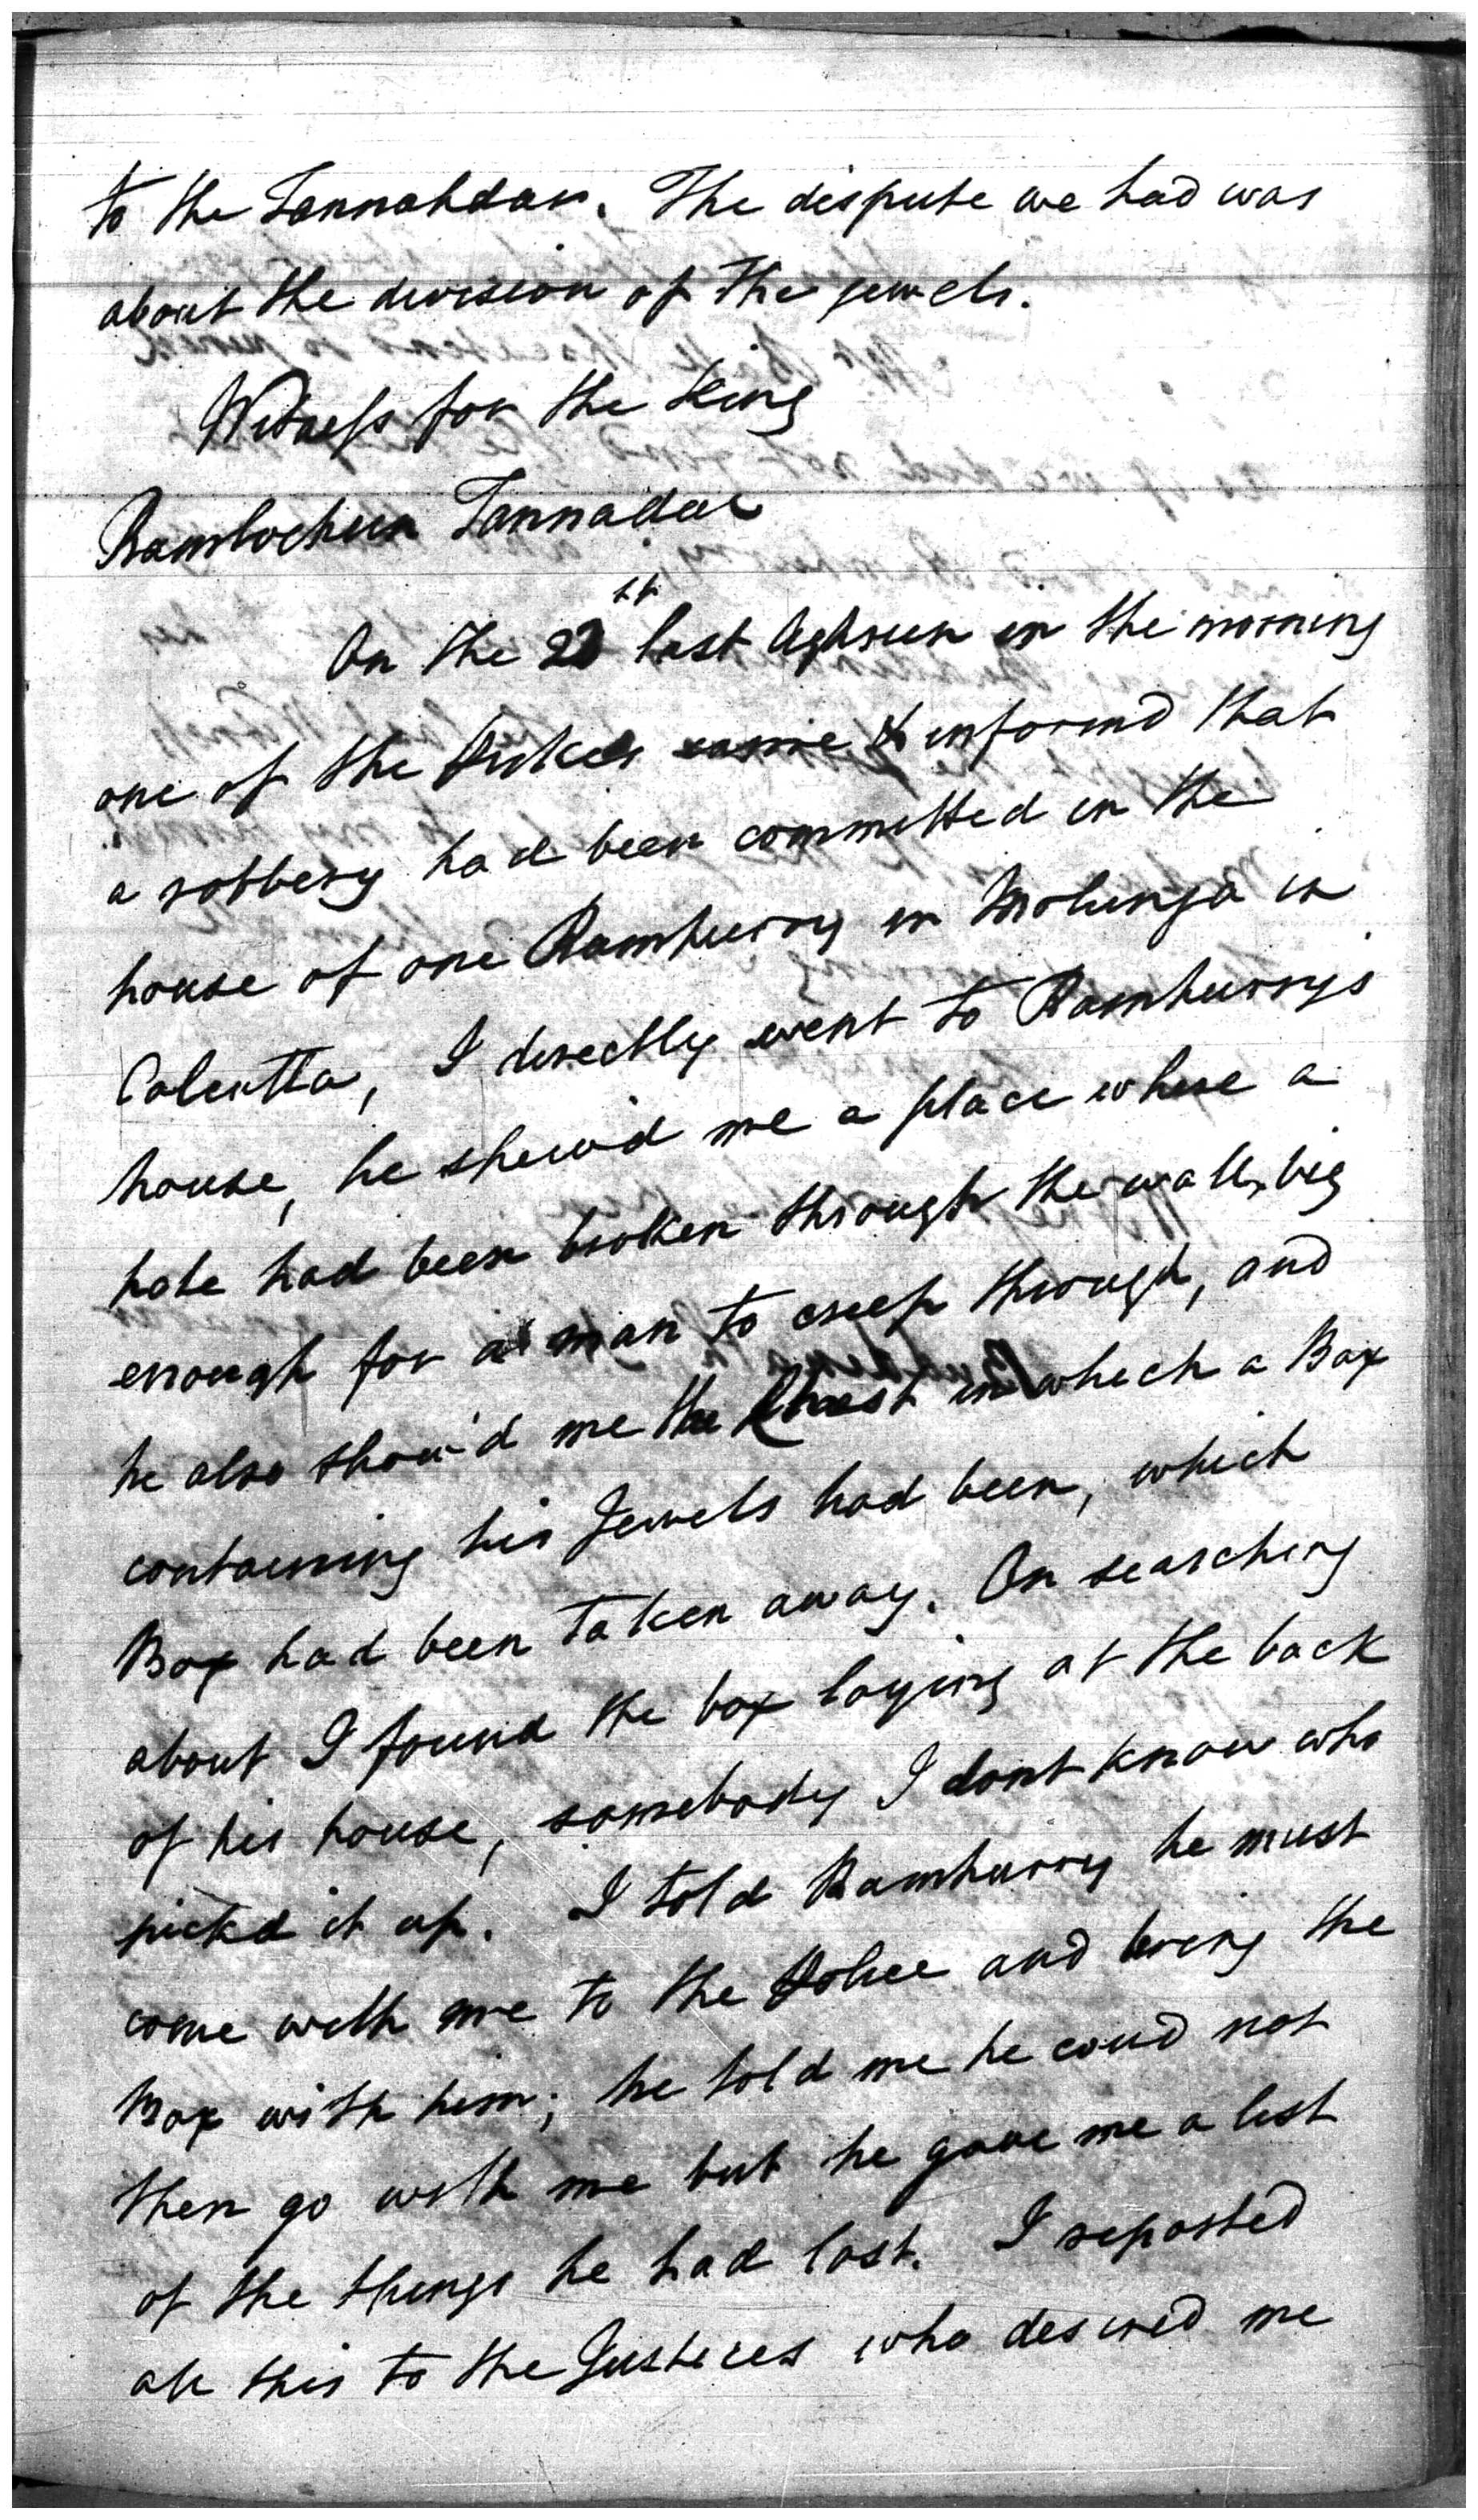 to the Tannahdar. The dispute we had was
about the division of the jewels.
Witness for the King
Ramlochun Tannadar
On the 22 last Aghrun in the morning
one of the came & informd that
a robbery had been committed in the
house of one Ramhurry in Molunga in
Calcutta, I directly went to Ramhurrys
house, he shew'd me a place where a
hole had been broken through the wall, big
enough for a man to creep through, and
he also shew'd me the Chest in which a Box
containing his Jewels had been, which
Box had been taken away. On searching
about I found the box laying at the back
of his house, somebody I dont know who
pickd it up. I told Ramhurry he must
come with me to the Police and bring the
Box with him; he told me he coud not
then go with me but he gave me a list
of the things he had lost. I reported
all this to the Justices who desired me